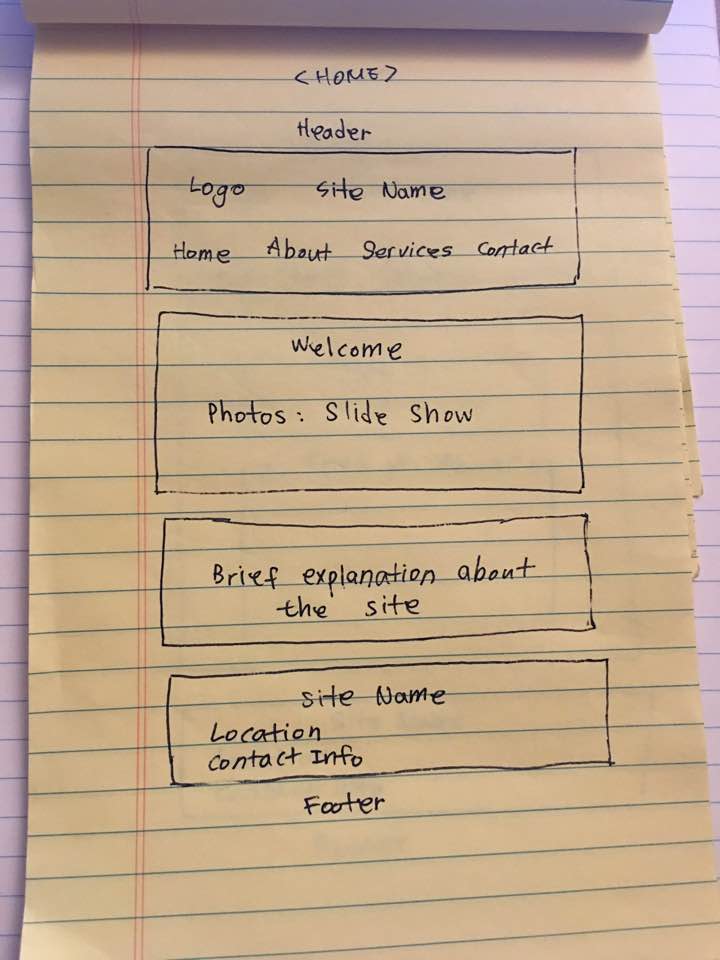 <HOME>
Header
Logo Site Name
Home About Services Contact
Welcome
Photos: Slide Show
Brief explanation about
the site
Site Name
Location
Contact Info
Footer